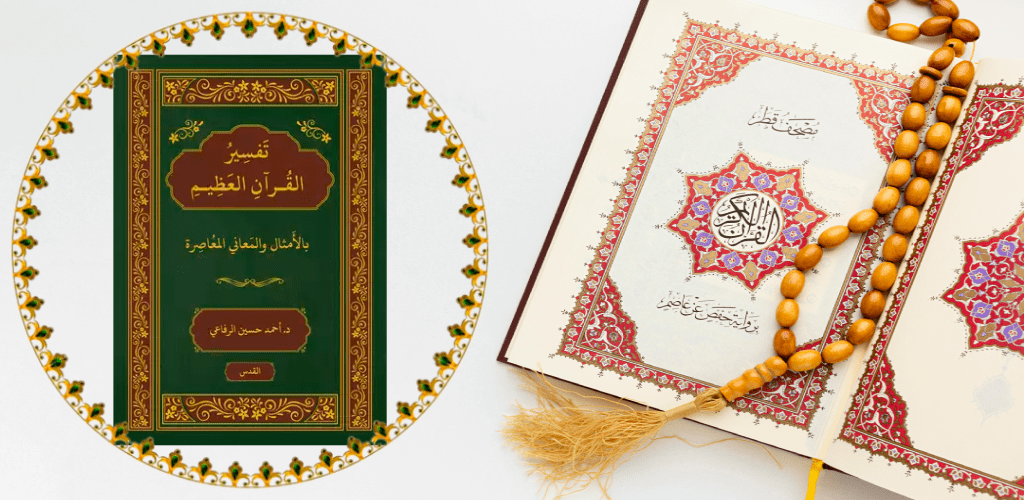 تَفسِيرُ
القُرآنِ العَظِيمِ
بالأَمثال والمَعاني المُعاصِرة
د. أحمد حسين الرفاعي
القدس
مصحف قطر
القرآن الكريم
برواية حفص عن عاصم